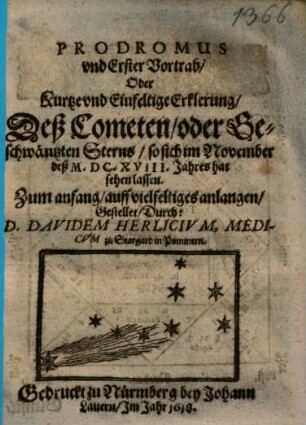 1366
PRODROMUS
vnd Erster Vortrab/
Oder
Kurtze vnd Einfeltige Erklerung/
Deß Cometen/oder Ge-
schwäntzten Sterns/ so sich im November
deß M. DC. XVIII. Jahres hat
sehen lassen.
Zum anfang/auff vielfeltiges anlangen/
Gestellet/Durch:
D. DAVIDEM HERLICIVM, MEDI-
CVM zu Stargard in Pommern.
Gedruckt zu Nürmberg bey Johann
Lauern/Im Jahr 1618.